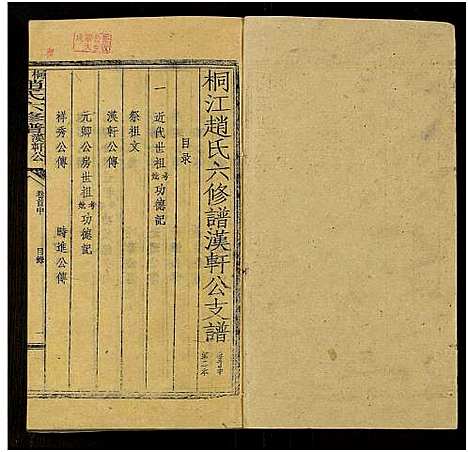 桐江趙氏六修譜漢軒公支譜
卷首中
第二本
目录
一
近代世祖考妣功德記
祭祖文
漢軒公傳
元卿公房世祖考妣功德記
祥秀公傳 時進公傳
桐江趙氏六修普漢軒公
卷首中 目錄 一